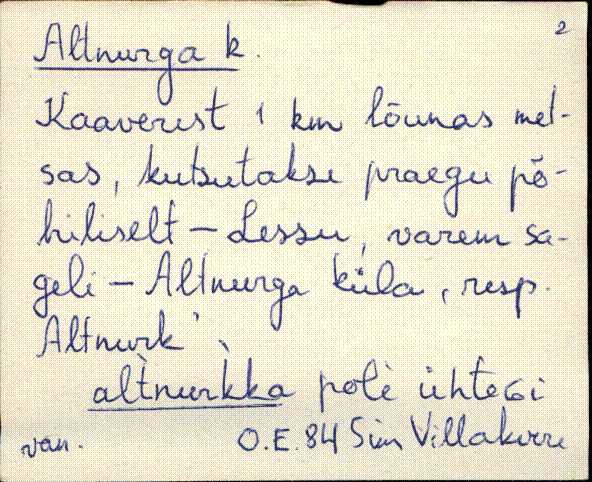 2
Altnurga k.
Kaaverist 1 km lõunas met-
sas, kutsutakse praegu põ-
hiliselt – Lessu, varem sa-
geli – Altnurga küla, resp.
Altnurk'.
al̀tnurkka polè ühtegi
van. O.E. 84 Sim Villakvere